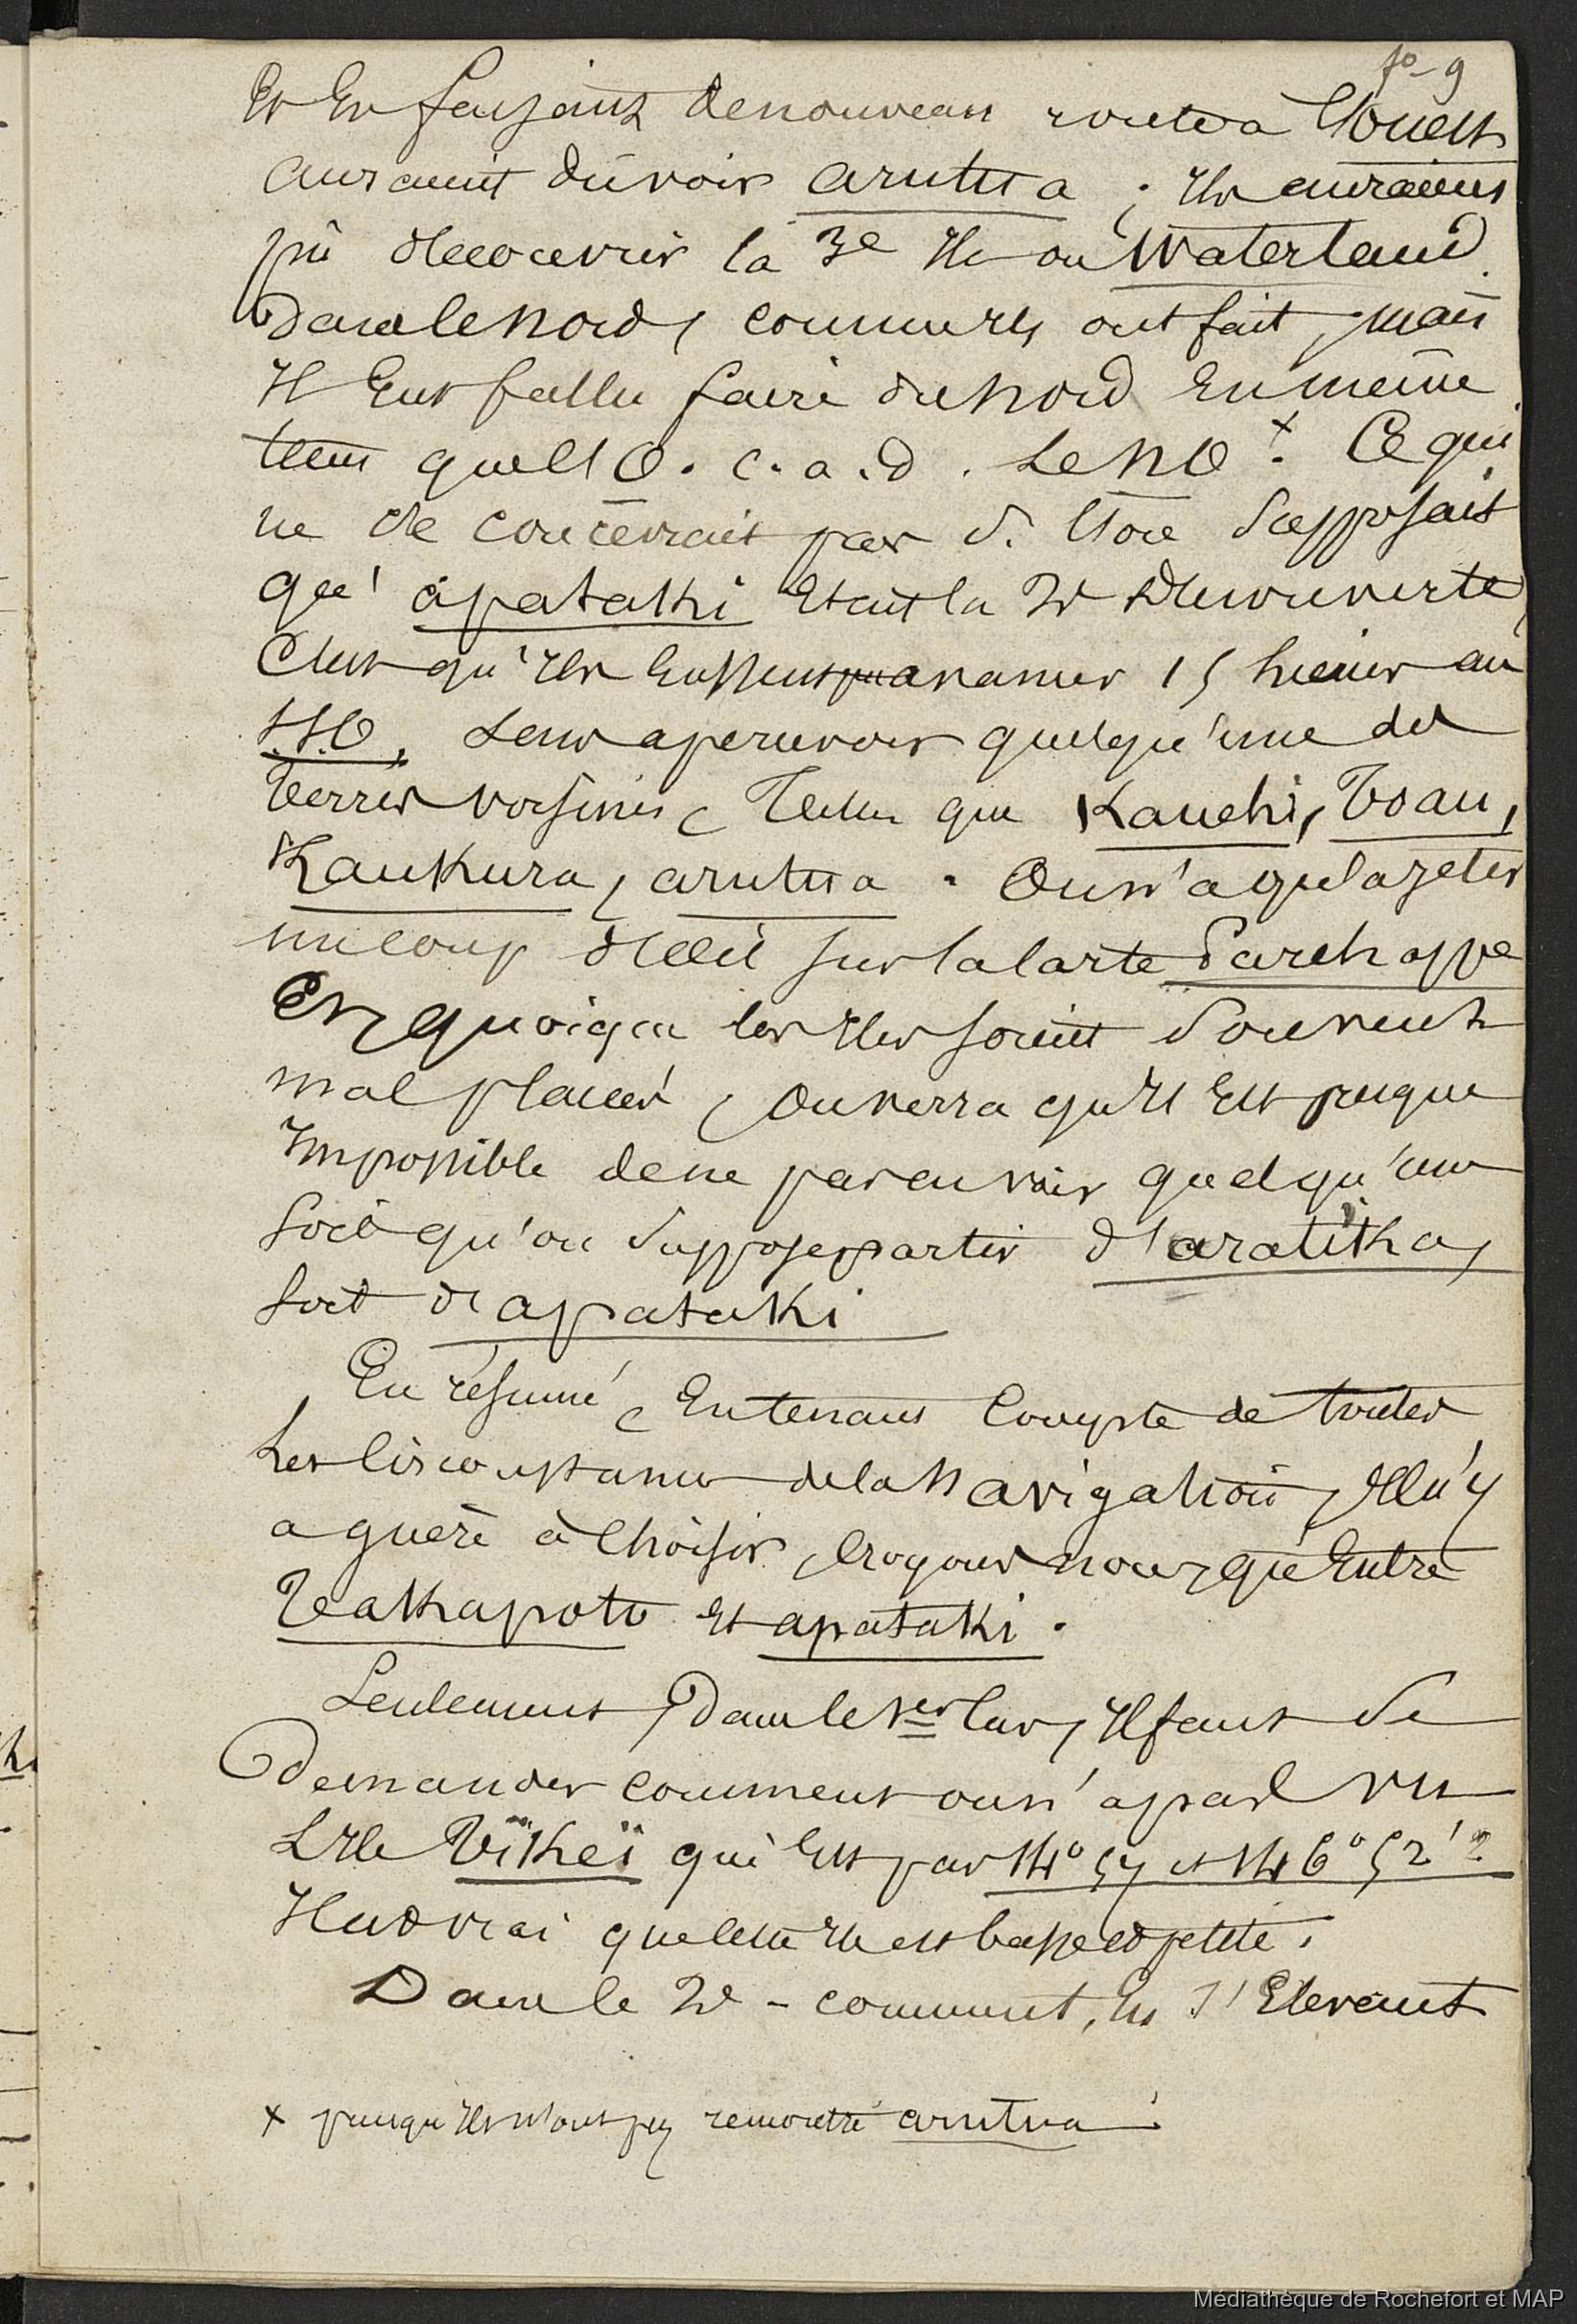 fo- 9
Et En faisant denouveau route a l'ouest
auraient dû voir arutua ; Ils auraient
pû découvrir la 3e Ile ou Waterland
Dans le nord, comme ils ont fait, mais
Il Eut fallu faire du nord En même
tems que l'O. c. a. d. Le NO x. Ce qui
ne se concevrait pas si l'on supposait
qu' apataki Etait la 2e découverte
C'est qu'ils Eussent avancer 15 heures au
SSO, sans apercevoir quelqu'une des
terres voisines, Telles que Kauehi, Toau,
Kaukura, arutua. On n'a qu'a jeter
un coup d'œil sur la carte Parchappe
Et quoique les Iles soient souvent
mal placées, on verra qu'il Est presque
Impossible de ne pas en voir quelqu'une
soit qu'on suppose partir d'aratika,
soit d'apataki
En résumé, En tenant Compte de toutes
Les Circonstances de la Navigation, Il n'y
a guère à Choisir, croyons nous, qu'Entre
Teakapoto Et apataki.
Seulement, Dans le 1er Cas, Il faut se
Demander comment on n'a pas vu
L'Ile Tikeï qui Est par 14° 57 et 146° 52' ?
Il est vrai que cette Ile est basse et petite.
Dans le 2e - comment, En s'Elevant
x puisqu'Ils n'ont pas rencontré arutua
Médiathèque de Rochefort et MAP